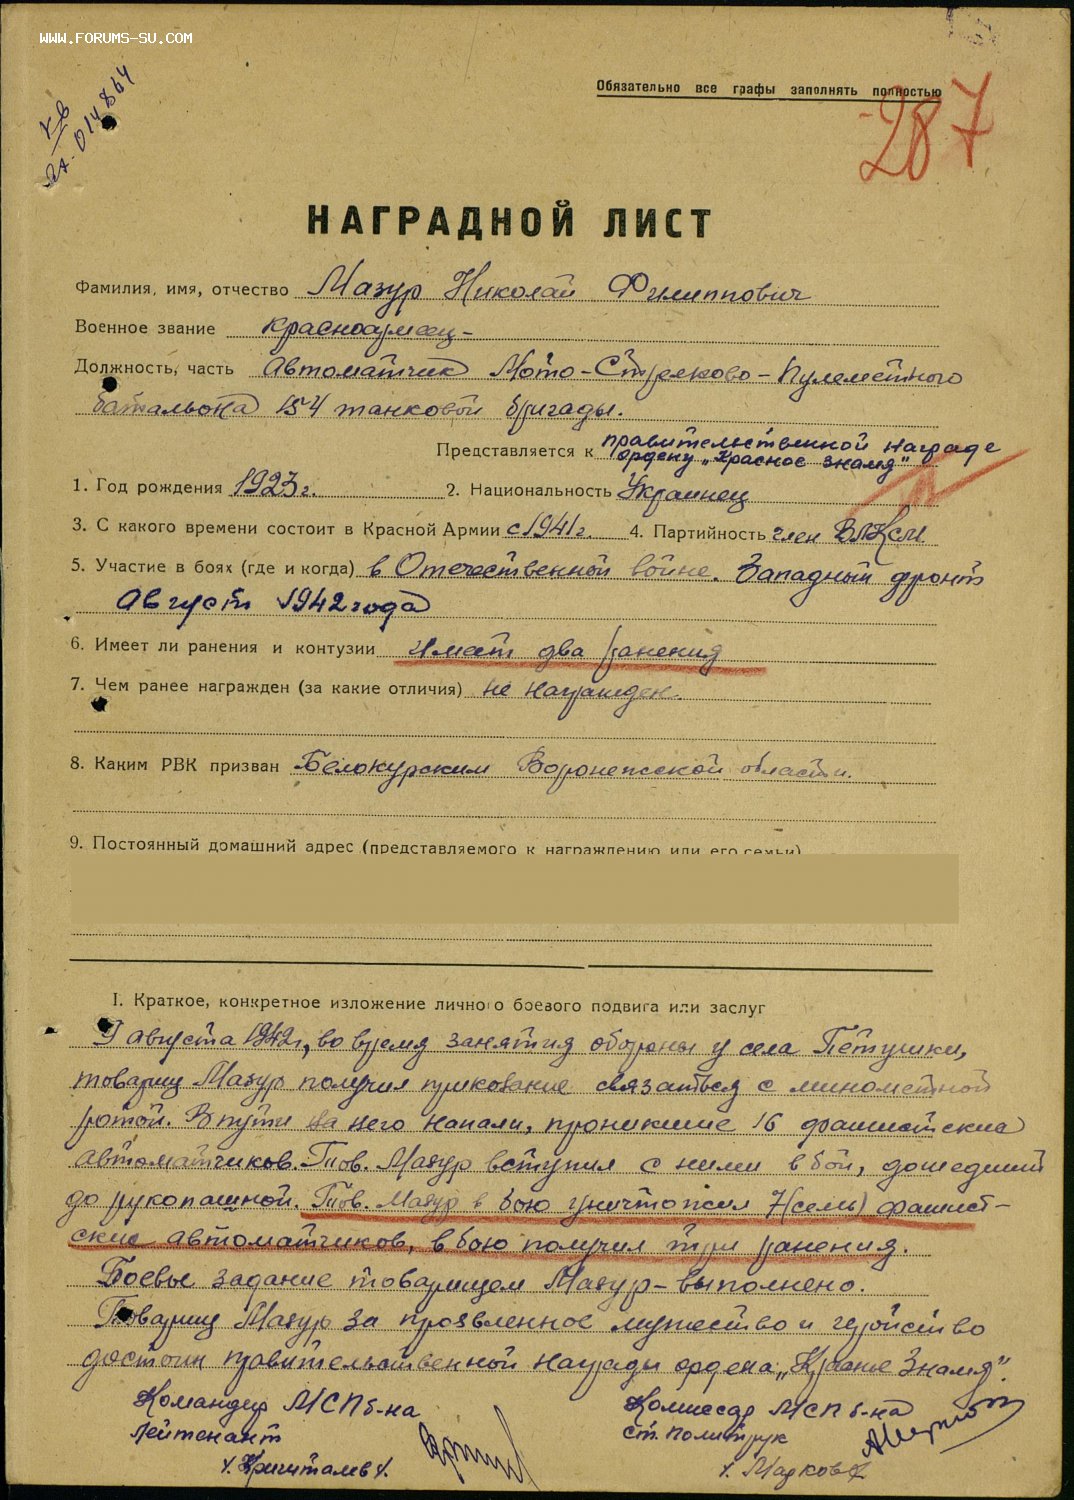 WWW.FORUMS-SU.COM
Обязательно все графы заполнять полностью
287
НАГРАДНОЙ ЛИСТ
Фамилия, имя, отчество Мазур Николай Филиппович
Военное звание красноармеец-
Должность, часть Автоматчик Мото-Стрелково-Пулеметного
батальона 154 танковой бригады.
Представляется к правительственной награде
ордену „Красное знамя"
1. Год рождения 1923 г. 2. Национальность Украинец
3. С какого времени состоит в Красной Армии с 1941 г. 4. Партийность член ВЛКСМ
5. Участие в боях (где и когда) в Отечественной войне. Западный фронт
Август 1942 года
6. Имеет ли ранения и контузии Имеет два ранения
7. Чем ранее награжден (за какие отличия) не награжден.
8. Каким РВК призван Белокурским Воронежской области.
9. Постоянный домашний адрес (представляемого к награждению или его семьи)
I. Краткое, конкретное изложение личного боевого подвига или заслуг
августа 1942 г., во время занятия обороны у села Петушки,
товарищ Мазур получил приказание связаться с минометной
ротой. В пути на него напали, проникшие 16 фашистские
автоматчиков. Тов. Мазур вступил с ними в бой, дошедший
до рукопашной. Тов. Мазур в бою уничтожил 7 (семь) фашист-
ские автоматчиков, в бою получил три ранения.
Боевое задание товарищем Мазур - выполнено.
Товарищ Мазур за проявленное мужество и геройство
достоин правительственной награды ордена „Красное Знамя".
Командир МСПб-на
Лейтенант
Комиссар МСП б-на
ст. политрук
/Марков/